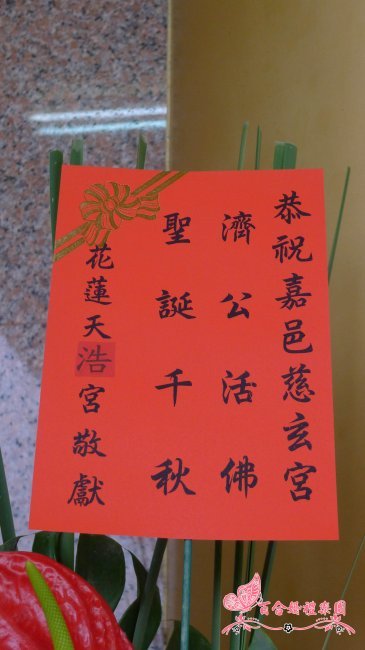 恭祝嘉邑慈玄宮
濟公活佛
聖誕千秋
花蓮天浩宮敬獻
百合婚禮樂園